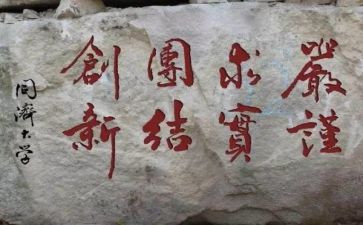 嚴謹
求實
團结
創新
同濟大学